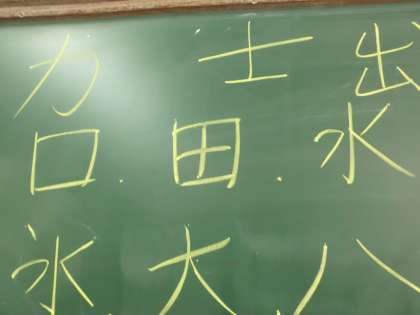 力 士 出
口 . 田 . 水
氷 大 八